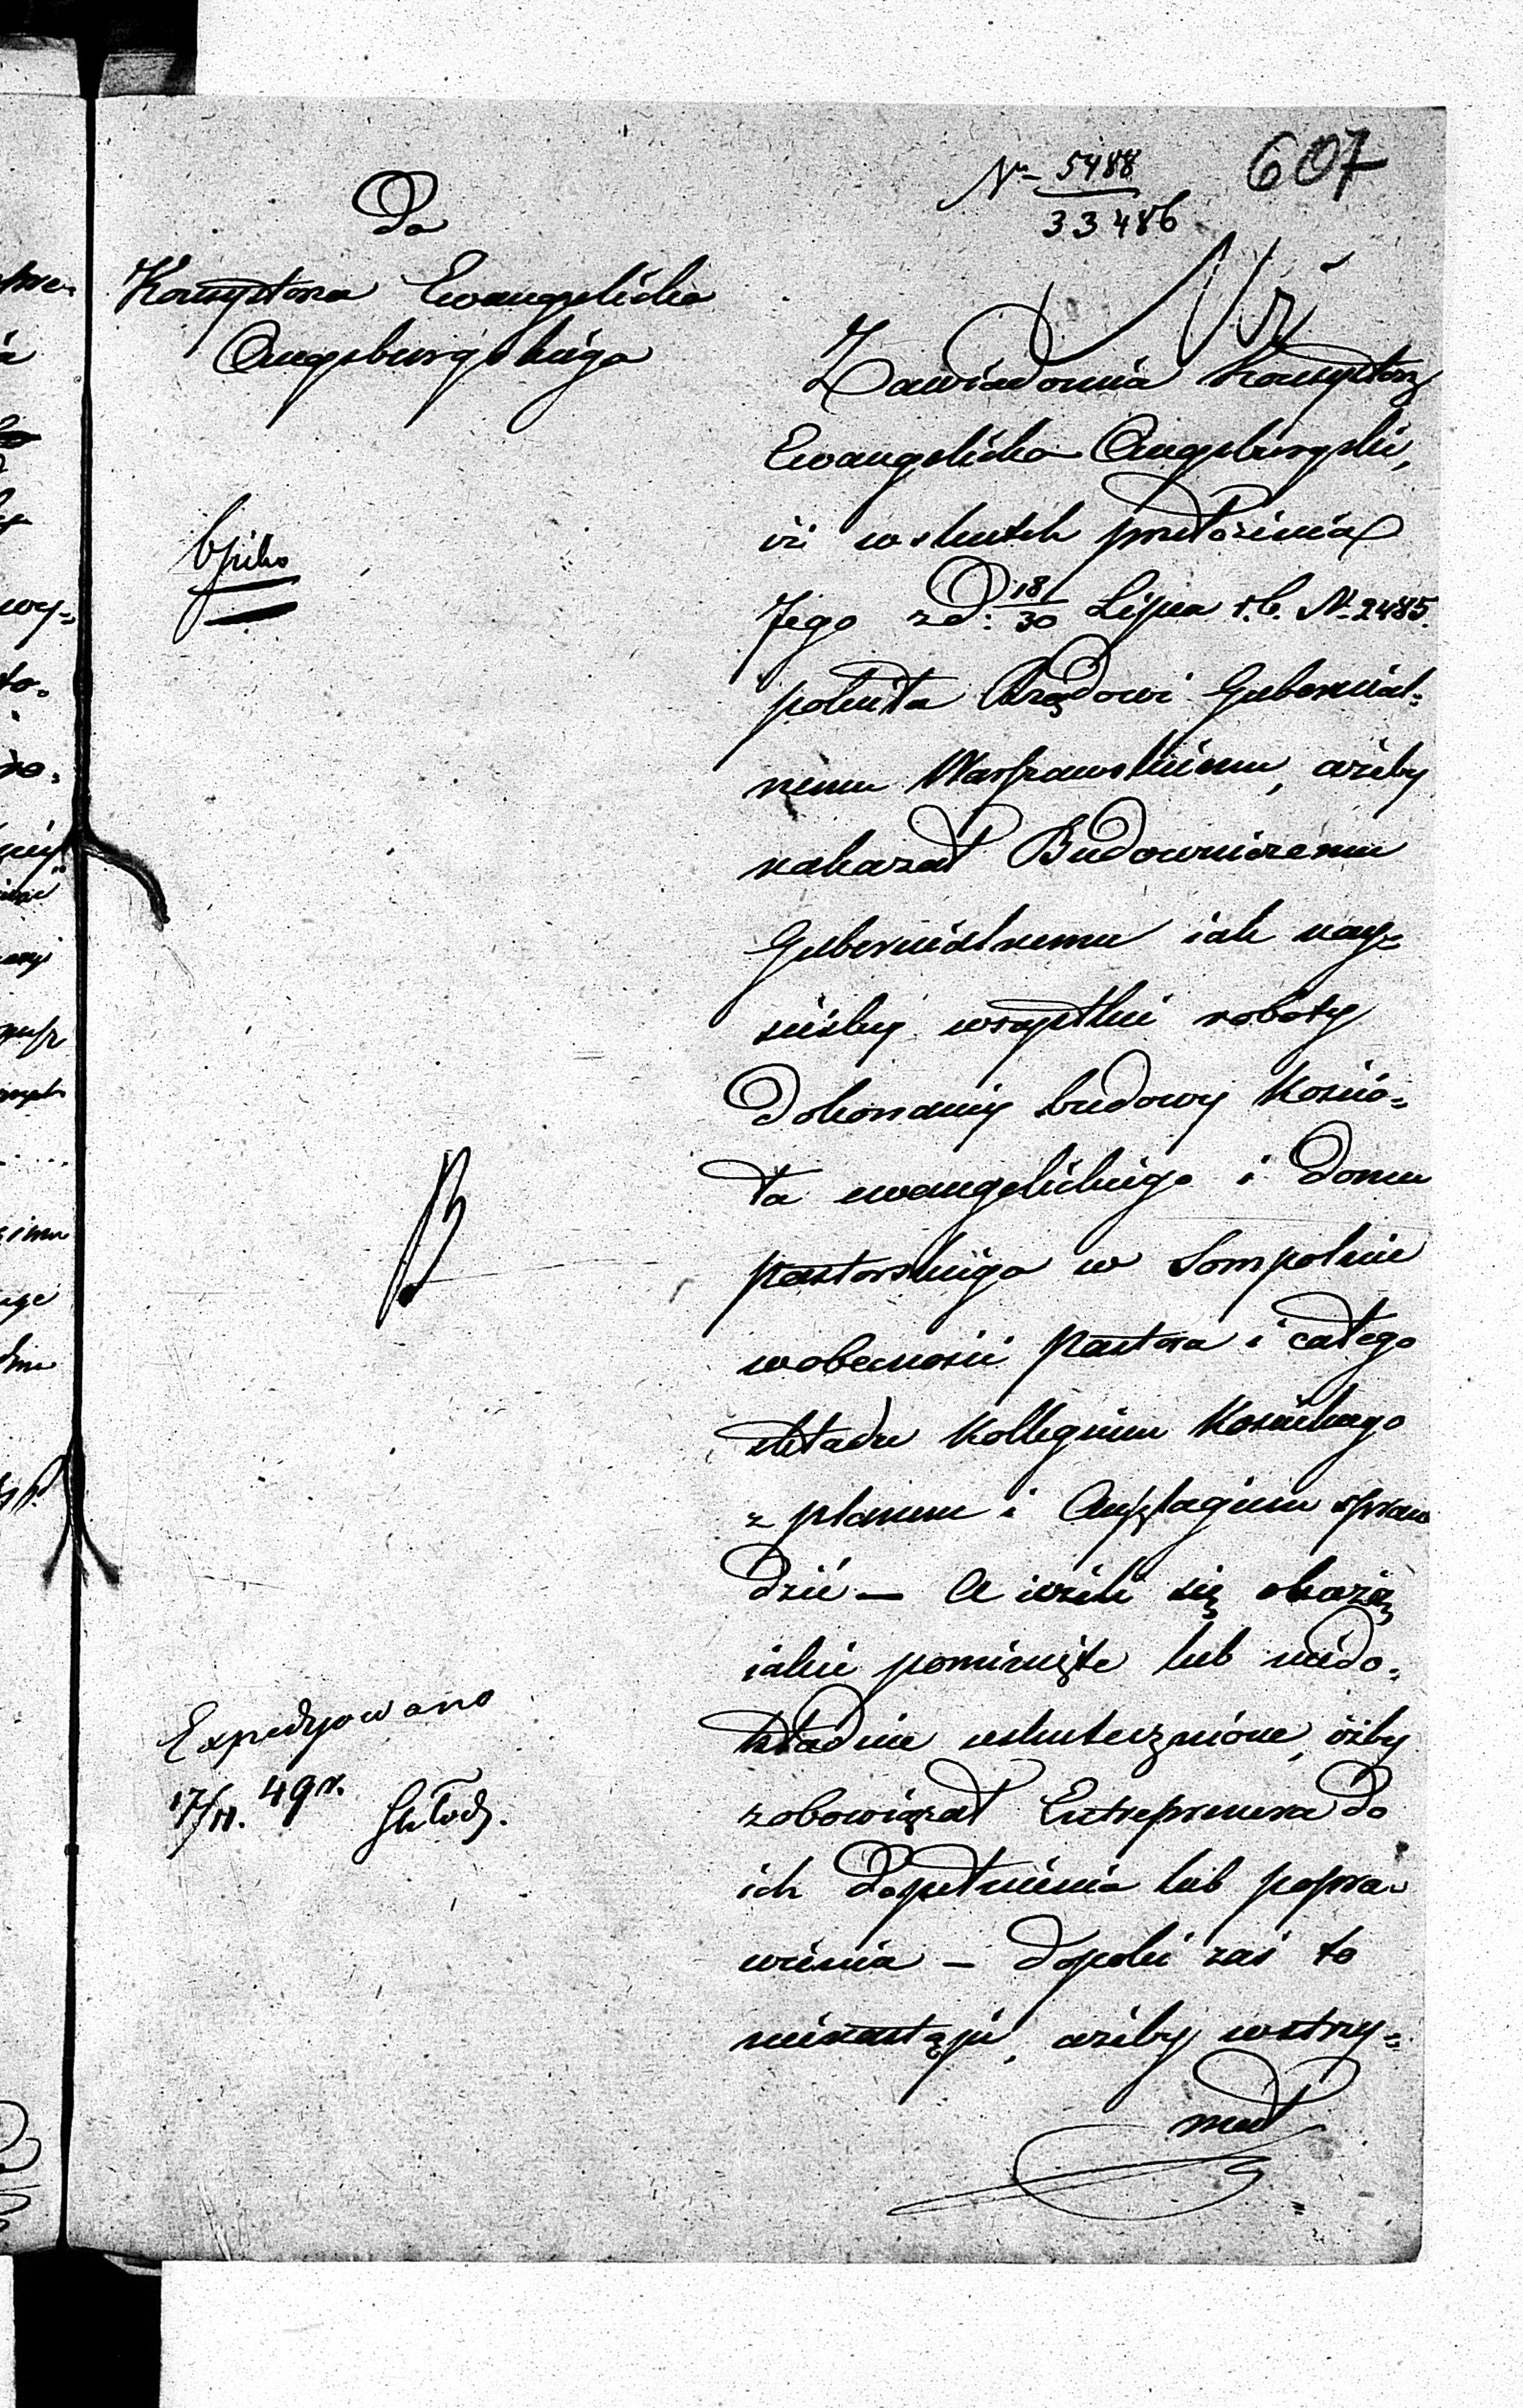 607
Nr 5488
33486
Do
Konsystorza Ewangelicko
Augsburgskiego
b. pilno
Zawiadomia Konsystorz
Ewangelicko Augsburgski,
iż wskutek przełożenia
Jego z d: 18/30 Lipca r. b. N. 2485.
poleciła Rządowi Gubernial=
nemu Warszawskiemu, ażeby
nakazał Budowniczemu
Gubernialnemu iak nay=
ściśley wszystkie roboty
dokonaney budowy Kościo=
ła ewangelickiego i domu
pastorskiego w Sompolnie
wobecności Pastora i całego
składu Kollegium Kościelnego
z planem i Anszlagiem spraw
dzić — A ieżeli się okażą
iakie pominięte lub niedo=
kładnie uskutecznione, iżby
zobowiązał Entreprenera do
ich dopełnienia lub popra=
wienia — dopóki zaś to
nienastąpi, ażeby wstrzy=
mał
Expedyowano
17/11. 49 r.